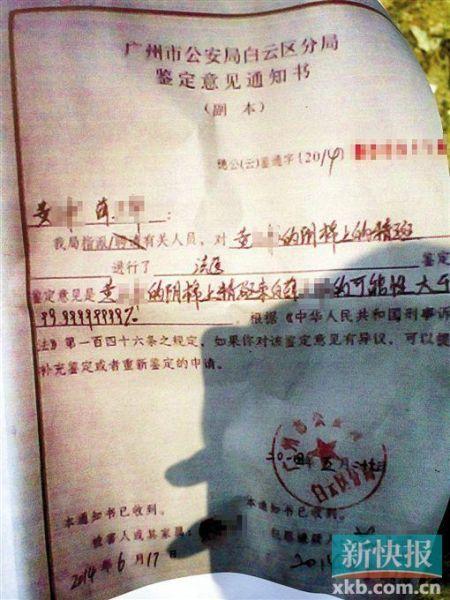 广州市公安局白云区分局
鉴定意见通知书
（副本）
穗公(云)鉴通字〔2014〕
黄
我局指派/聘请有关人员，对 黄 的阴棉上的精斑
进行了 法医 鉴定
鉴定意见是 黄 的阴棉上精斑来自薛 的可能性大于
99.99999999%！ 根据《中华人民共和国刑事诉
法》第一百四十六条之规定，如果你对该鉴定意见有异议，可以提
补充鉴定或者重新鉴定的申请。
广州市公安局
白云区分局
本通知书已收到。
本通知书已收到。
被害人或其家属：
犯罪嫌疑人
2014年6月17日
新快报
xkb.com.cn